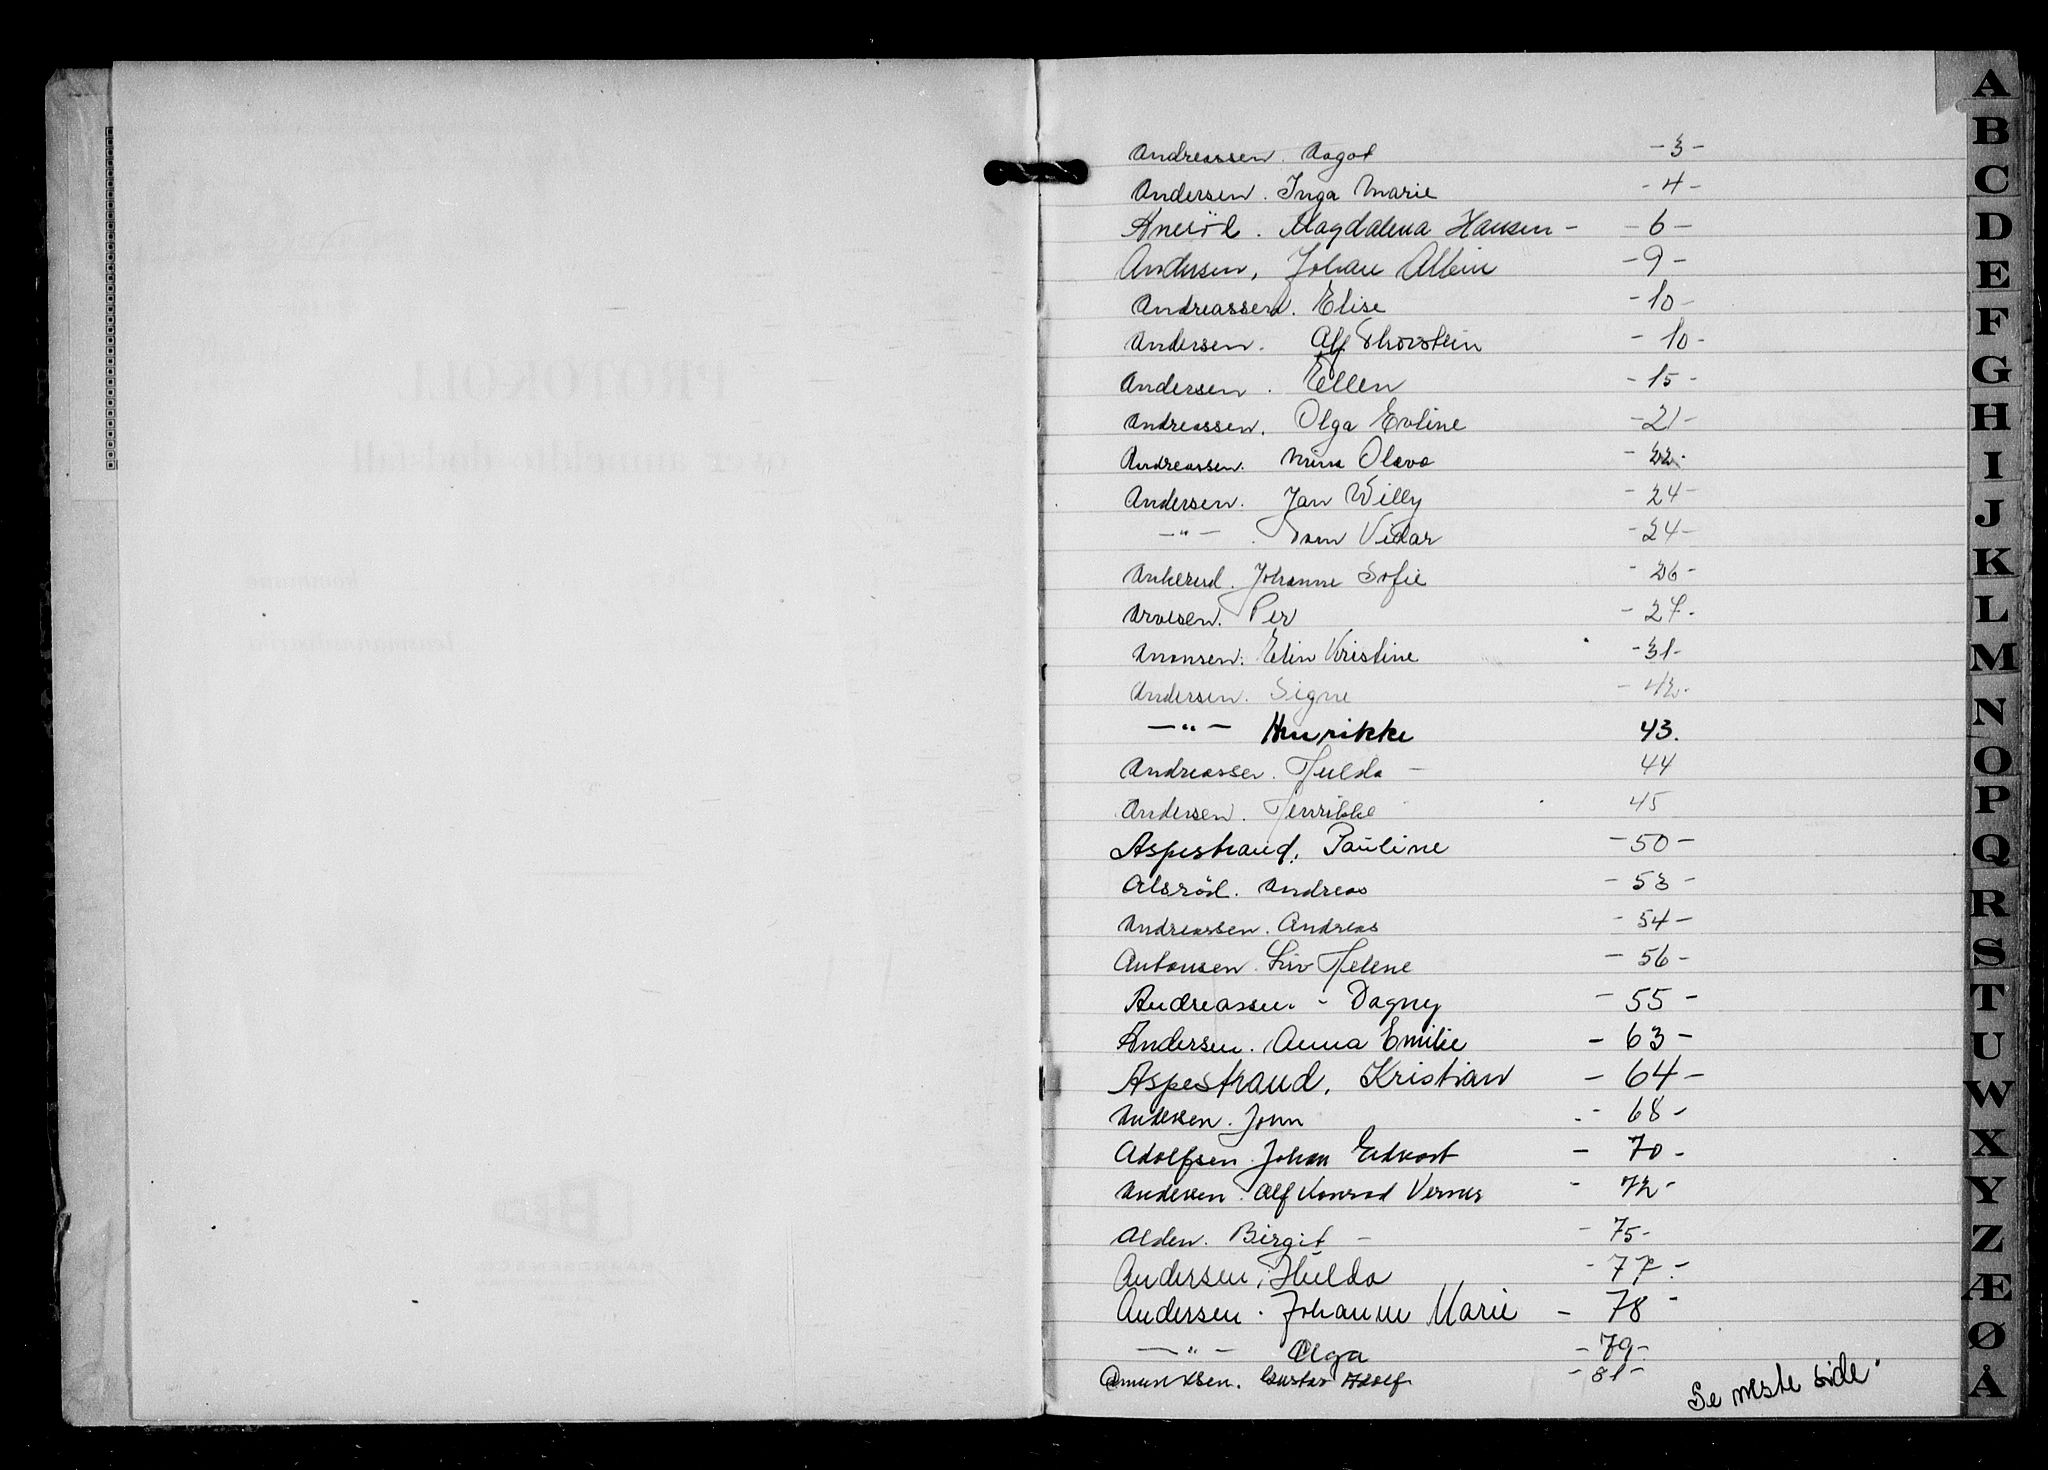 Andreassen. Aagot -3-
Andersen. Inga Marie -4-
Anerød. Magdalena Hansen - -6-
Andersen, Johan Albin -9-
Andreassen. Elise -10-
Andersen. Alf Thorstein -10-
Andersen. Ellen -15-
Andreassen. Olga Evline -21-
Andreassen. Nina Olava -22-
Andersen. Jan Willy -24-
-"- . Tom Vidar -24-
Ankerud. Johanne Sofie -26-
Arvesen. Per -27-
Aronsen. Elin Kristine -31-
Andersen. Signe -42-
-"- Henrikke 43.
Andreassen. Hulda - 44
Andersen. Henrikke 45
Aspestrand. Pauline -50-
Alsrød. Andreas -53-
Andreassen. Andreas -54-
Antonsen. Liv Helene -56-
Andreassen - Dagny -55-
Andersen. Anna Emilie -63-
Aspestrand. Kristian -64-
Andersen. John -68-
Adolfsen. Johan Edvart -70-
Andersen. Alf Konrad Verner -72-
Alden. Birgit - -75-
Andersen, Hulda -77-
Andersen. Johanne Marie -78-
-"- Olga -79-
Amundsen. Gustav Adolf -81-
Se neste side.
A
B
C
D
E
F
G
H
I
J
K
L
M
N
O
P
Q
R
S
T
U
W
X
Y
Z
Æ
Ø
Å
PROTOKOLL
over anmeldte dødsfall
kommune
lensmannsdistrikt